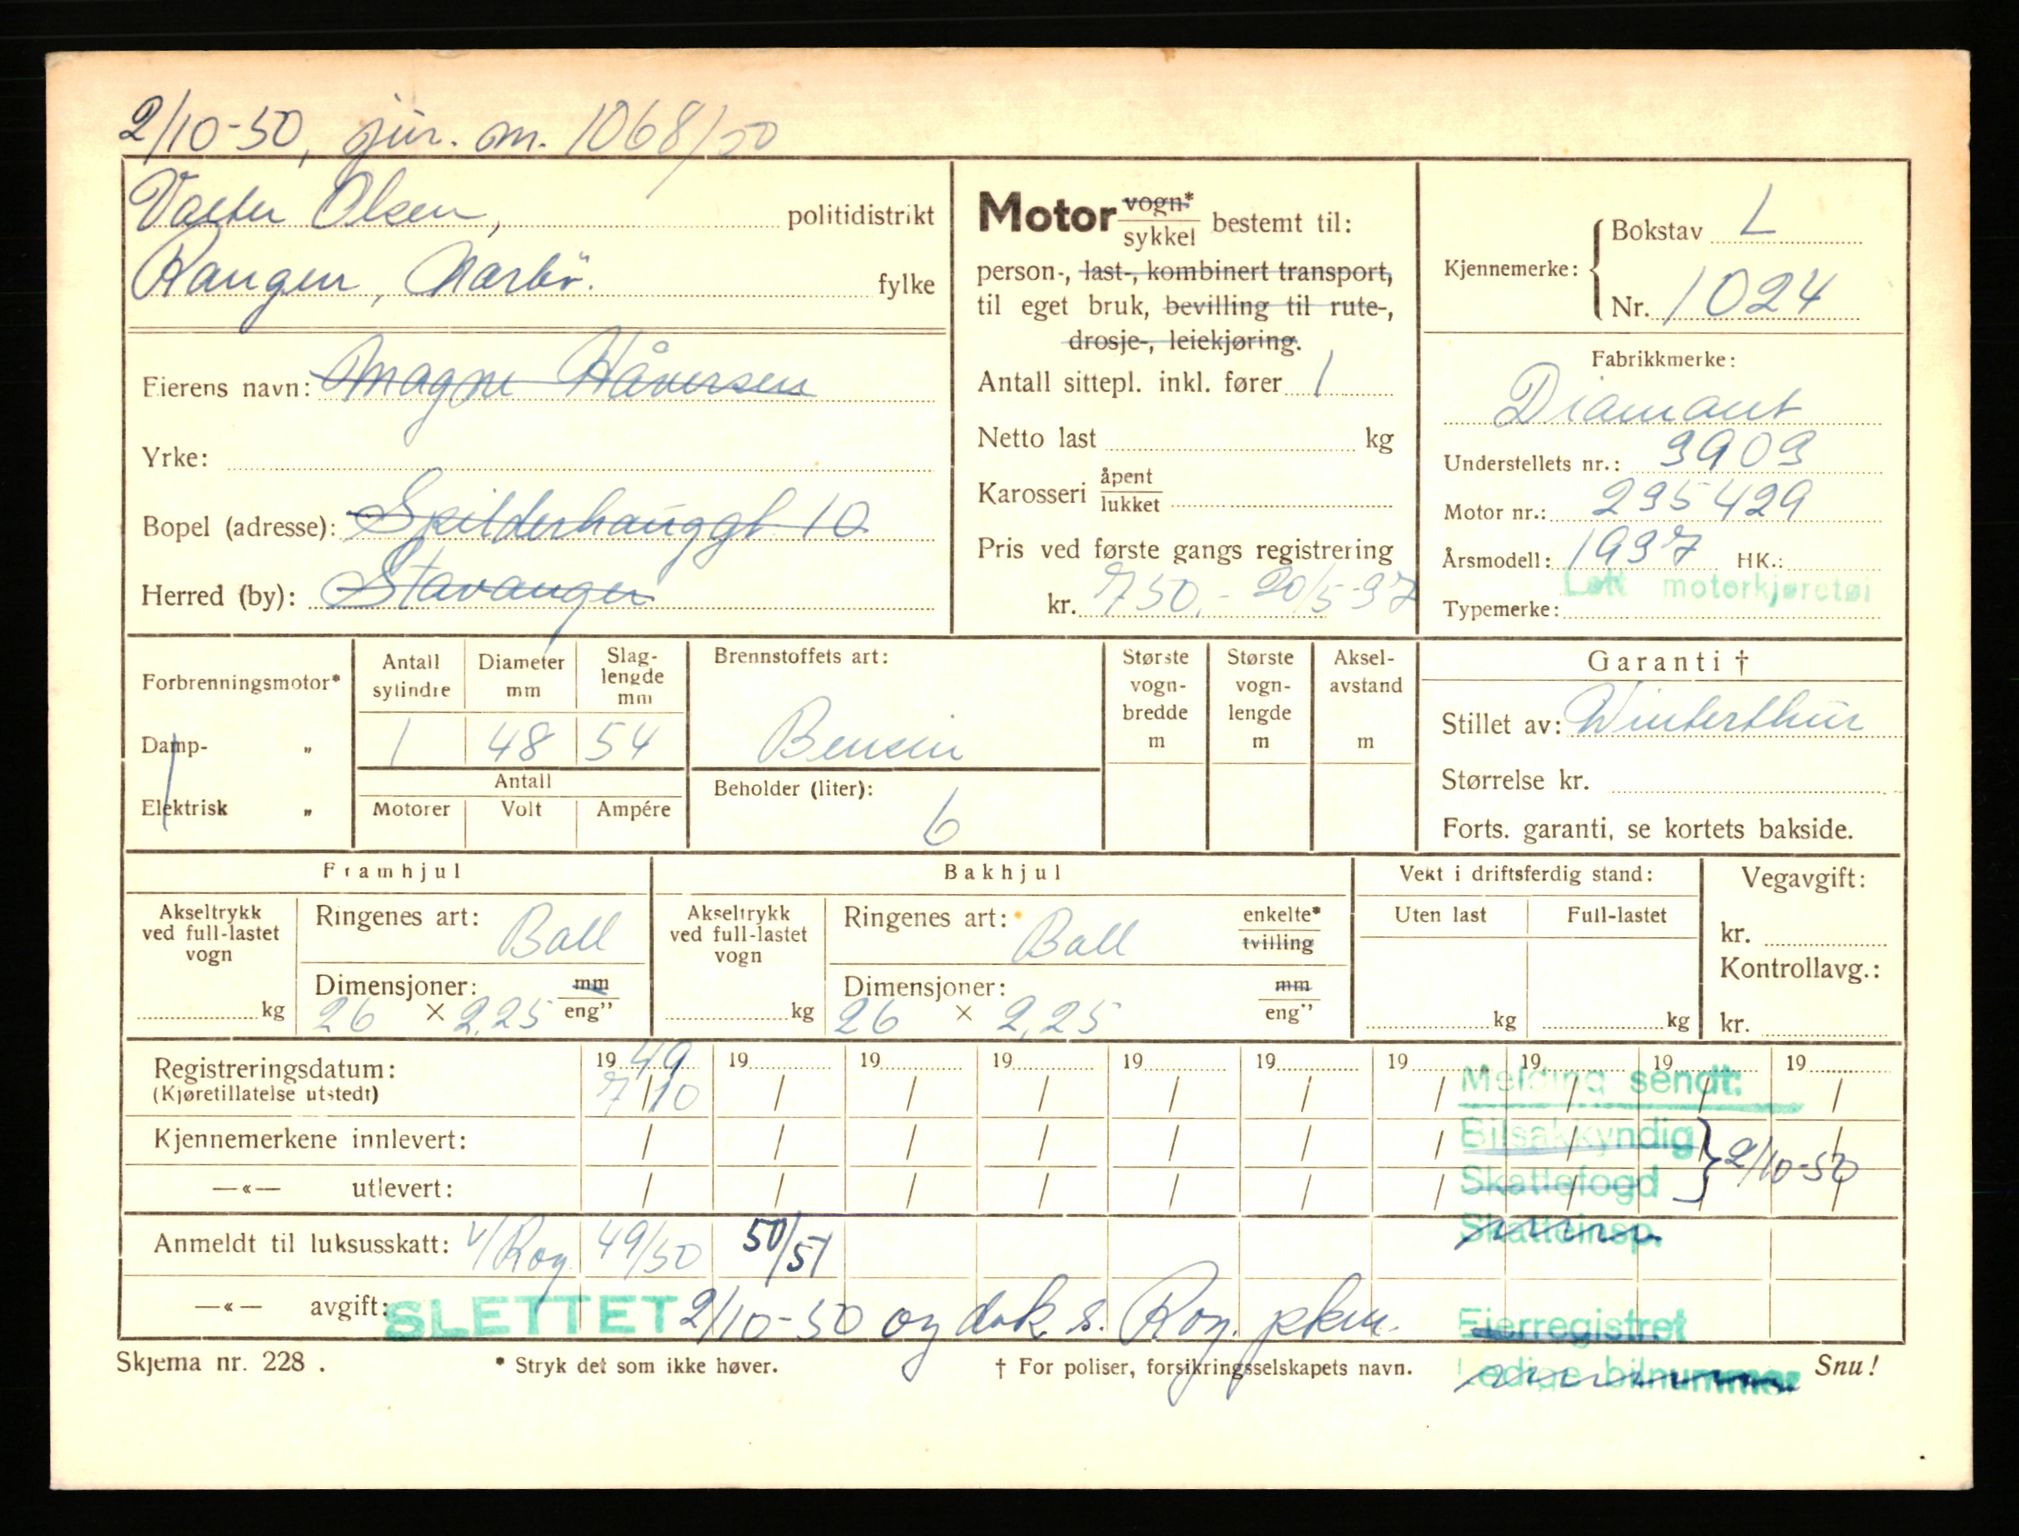 2/10-50, jnr. m. 1068/50
Valter Olsen, politidistrikt
Rangen, Nærbö. fylke
Eierens navn: Magne Håversen
Yrke:
Bopel (adresse): Spilderhauggt. 10
Herred (by): Stavanger
Motor vogn* / sykkel bestemt til:
person-, last-, kombinert transport,
til eget bruk, bevilling til rute-,
drosje-, leiekjøring.
Antall sittepl. inkl. fører 1
Netto last kg
Karosseri åpent / lukket
Pris ved første gangs registrering
kr. 750.- 20/5-37
Kjennemerke: Bokstav L
Nr. 1024
Fabrikkmerke:
Diamant
Understellets nr.: 3909
Motor nr.: 235429
Årsmodell: 1937 HK.:
Lett motorkjøretøi
Typemerke:
Forbrenningsmotor*
Damp- „
Elektrisk „
Antall sylindre Diameter mm Slag-lengde mm
1 48 54
Antall
Motorer Volt Ampére
Brennstoffets art:
Bensin
Beholder (liter):
6
Største vogn-bredde m
Største vogn-lengde m
Aksel-avstand m
Garanti †
Stillet av: Winterthur
Størrelse kr.
Forts. garanti, se kortets bakside.
Framhjul
Akseltrykk ved full-lastet vogn
kg
Ringenes art: Ball
Dimensjoner: mm / eng”
26 × 2.25
Bakhjul
Akseltrykk ved full-lastet vogn
kg
Ringenes art: Ball enkelte* / tvilling
Dimensjoner: mm / eng”
26 × 2,25
Vekt i driftsferdig stand:
Uten last Full-lastet
kg kg
Vegavgift:
kr.
Kontrollavg.:
kr.
Registreringsdatum: 1949 19 19 19 19 19 19 19 19 19
(Kjøretillatelse utstedt) 7/10 / / / / / / / / /
Kjennemerkene innlevert: / / / / / / / / / /
—«— utlevert: / / / / / / / / / /
Melding sendt:
Bilsakkyndig
Skattefogd } 2/10-50
Skatteinsp.
Anmeldt til luksusskatt: v/Rog. 49/50 50/51
—«— avgift: SLETTET 2/10-50 og dok. s. Rog. pkm.
Eierregistret
Ledige bilnummer
Skjema nr. 228 . * Stryk det som ikke høver. † For poliser, forsikringsselskapets navn. Snu!